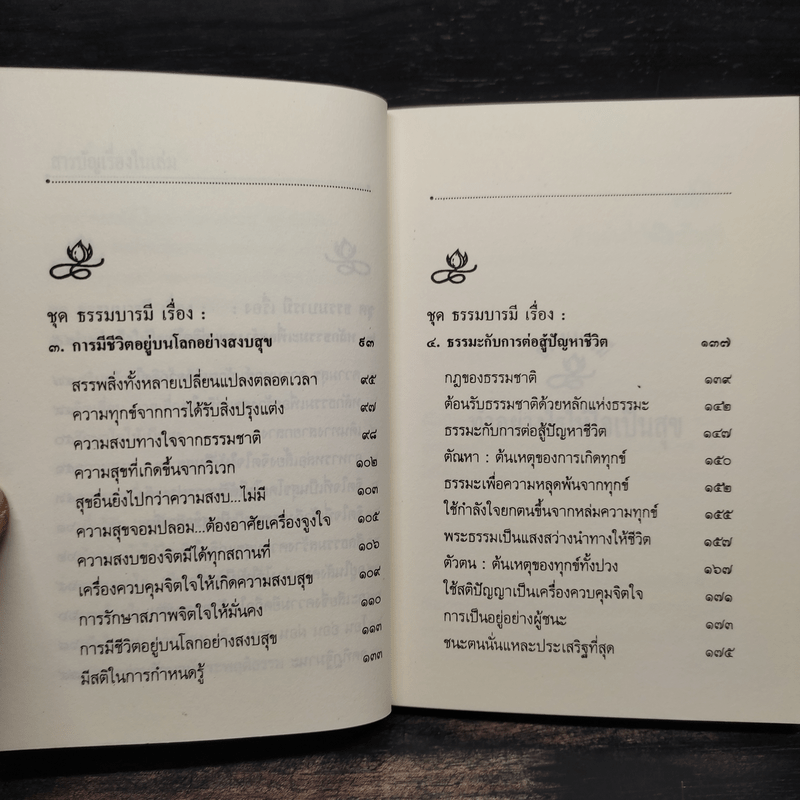 ชุด ธรรมบารมี เรื่อง :
๓. การมีชีวิตอยู่บนโลกอย่างสงบสุข ๙๓
สรรพสิ่งทั้งหลายเปลี่ยนแปลงตลอดเวลา ๙๕
ความทุกข์จากการได้รับสิ่งปรุงแต่ง ๙๗
ความสงบทางใจจากธรรมชาติ ๙๘
ความสุขที่เกิดขึ้นจากวิเวก ๑๐๒
สุขอื่นยิ่งไปกว่าความสงบ...ไม่มี ๑๐๓
ความสุขจอมปลอม...ต้องอาศัยเครื่องจูงใจ ๑๐๕
ความสงบของจิตมีได้ทุกสถานที่ ๑๐๖
เครื่องควบคุมจิตใจให้เกิดความสงบสุข ๑๐๙
การรักษาสภาพจิตใจให้มั่นคง ๑๑๐
การมีชีวิตอยู่บนโลกอย่างสงบสุข ๑๑๓
มีสติในการกำหนดรู้ ๑๓๓
ชุด ธรรมบารมี เรื่อง :
๔. ธรรมะกับการต่อสู้ปัญหาชีวิต ๑๓๗
กฎของธรรมชาติ ๑๓๙
ต้อนรับธรรมชาติด้วยหลักแห่งธรรมะ ๑๔๒
ธรรมะกับการต่อสู้ปัญหาชีวิต ๑๔๗
ตัณหา : ต้นเหตุของการเกิดทุกข์ ๑๕๐
ธรรมะเพื่อความหลุดพ้นจากทุกข์ ๑๕๒
ใช้กำลังใจยกตนขึ้นจากหล่มความทุกข์ ๑๕๕
พระธรรมเป็นแสงสว่างนำทางให้ชีวิต ๑๕๗
ตัวตน : ต้นเหตุของทุกข์ทั้งปวง ๑๖๗
ใช้สติปัญญาเป็นเครื่องควบคุมจิตใจ ๑๗๑
การเป็นอยู่อย่างผู้ชนะ ๑๗๓
ชนะตนนั่นแหละประเสริฐที่สุด ๑๗๕